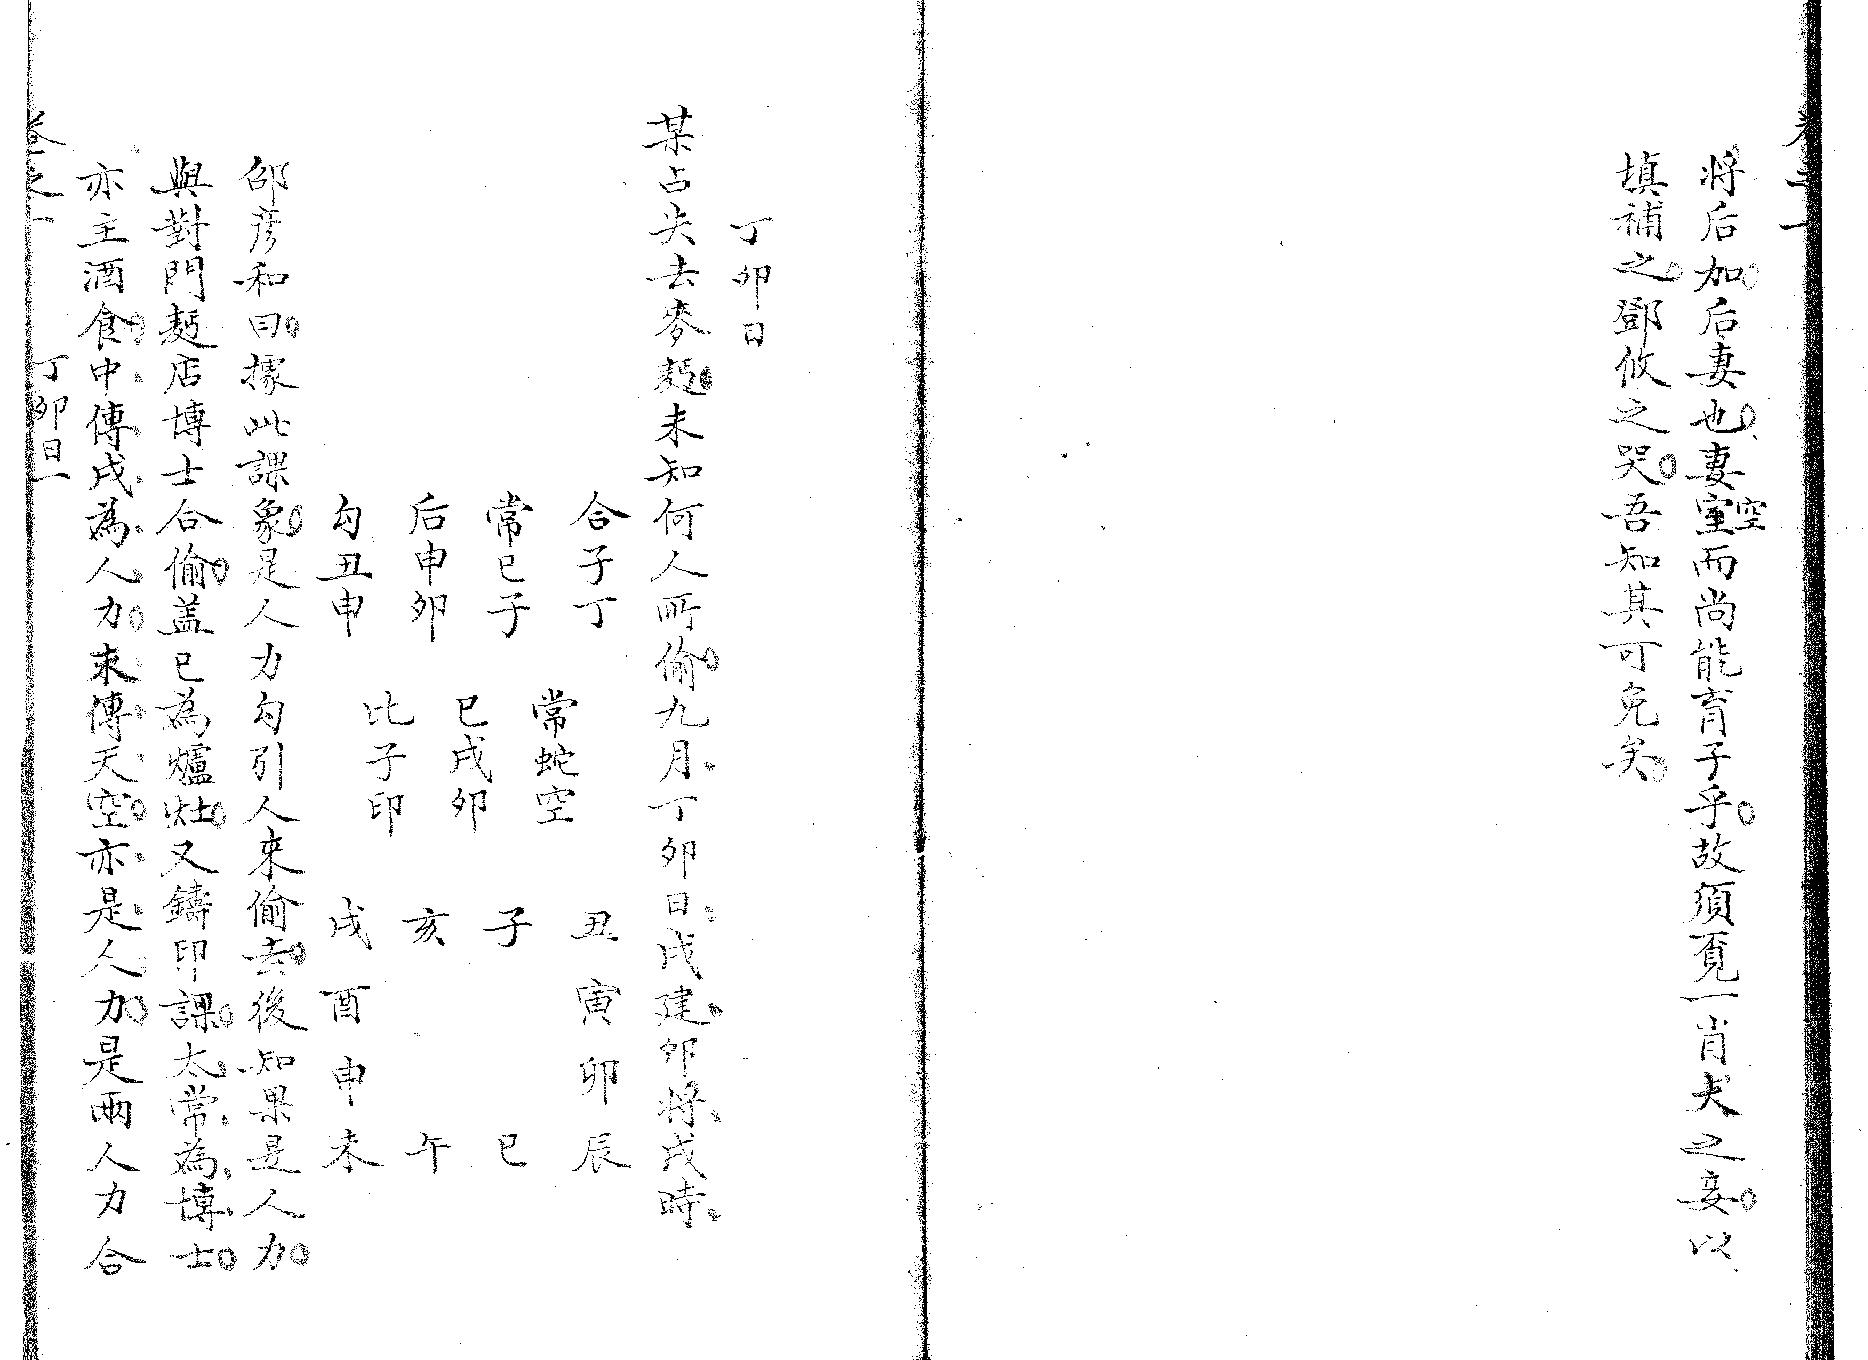 将后加后妻也妻室而尚能育子乎故須覓一肖犬之妾以
空
填補之鄧攸之哭吾知其可免矣
丁卯日
某占失去麥麫未知何人所偷九月丁卯日戌建卯将戌時
合子丁
常巳子
后申卯
勾丑申
常蛇空
巳戌卯
比子印
丑寅卯辰
子 巳
亥 午
戌酉申未
邵彦和曰據此課象是人力勾引人來偷去後知果是人力
與對門麫店博士合偷盖巳為爐灶又鑄印課太常為博士
亦主酒食中傳戌為人力末傳天空亦是人力是兩人力合
丁卯日一